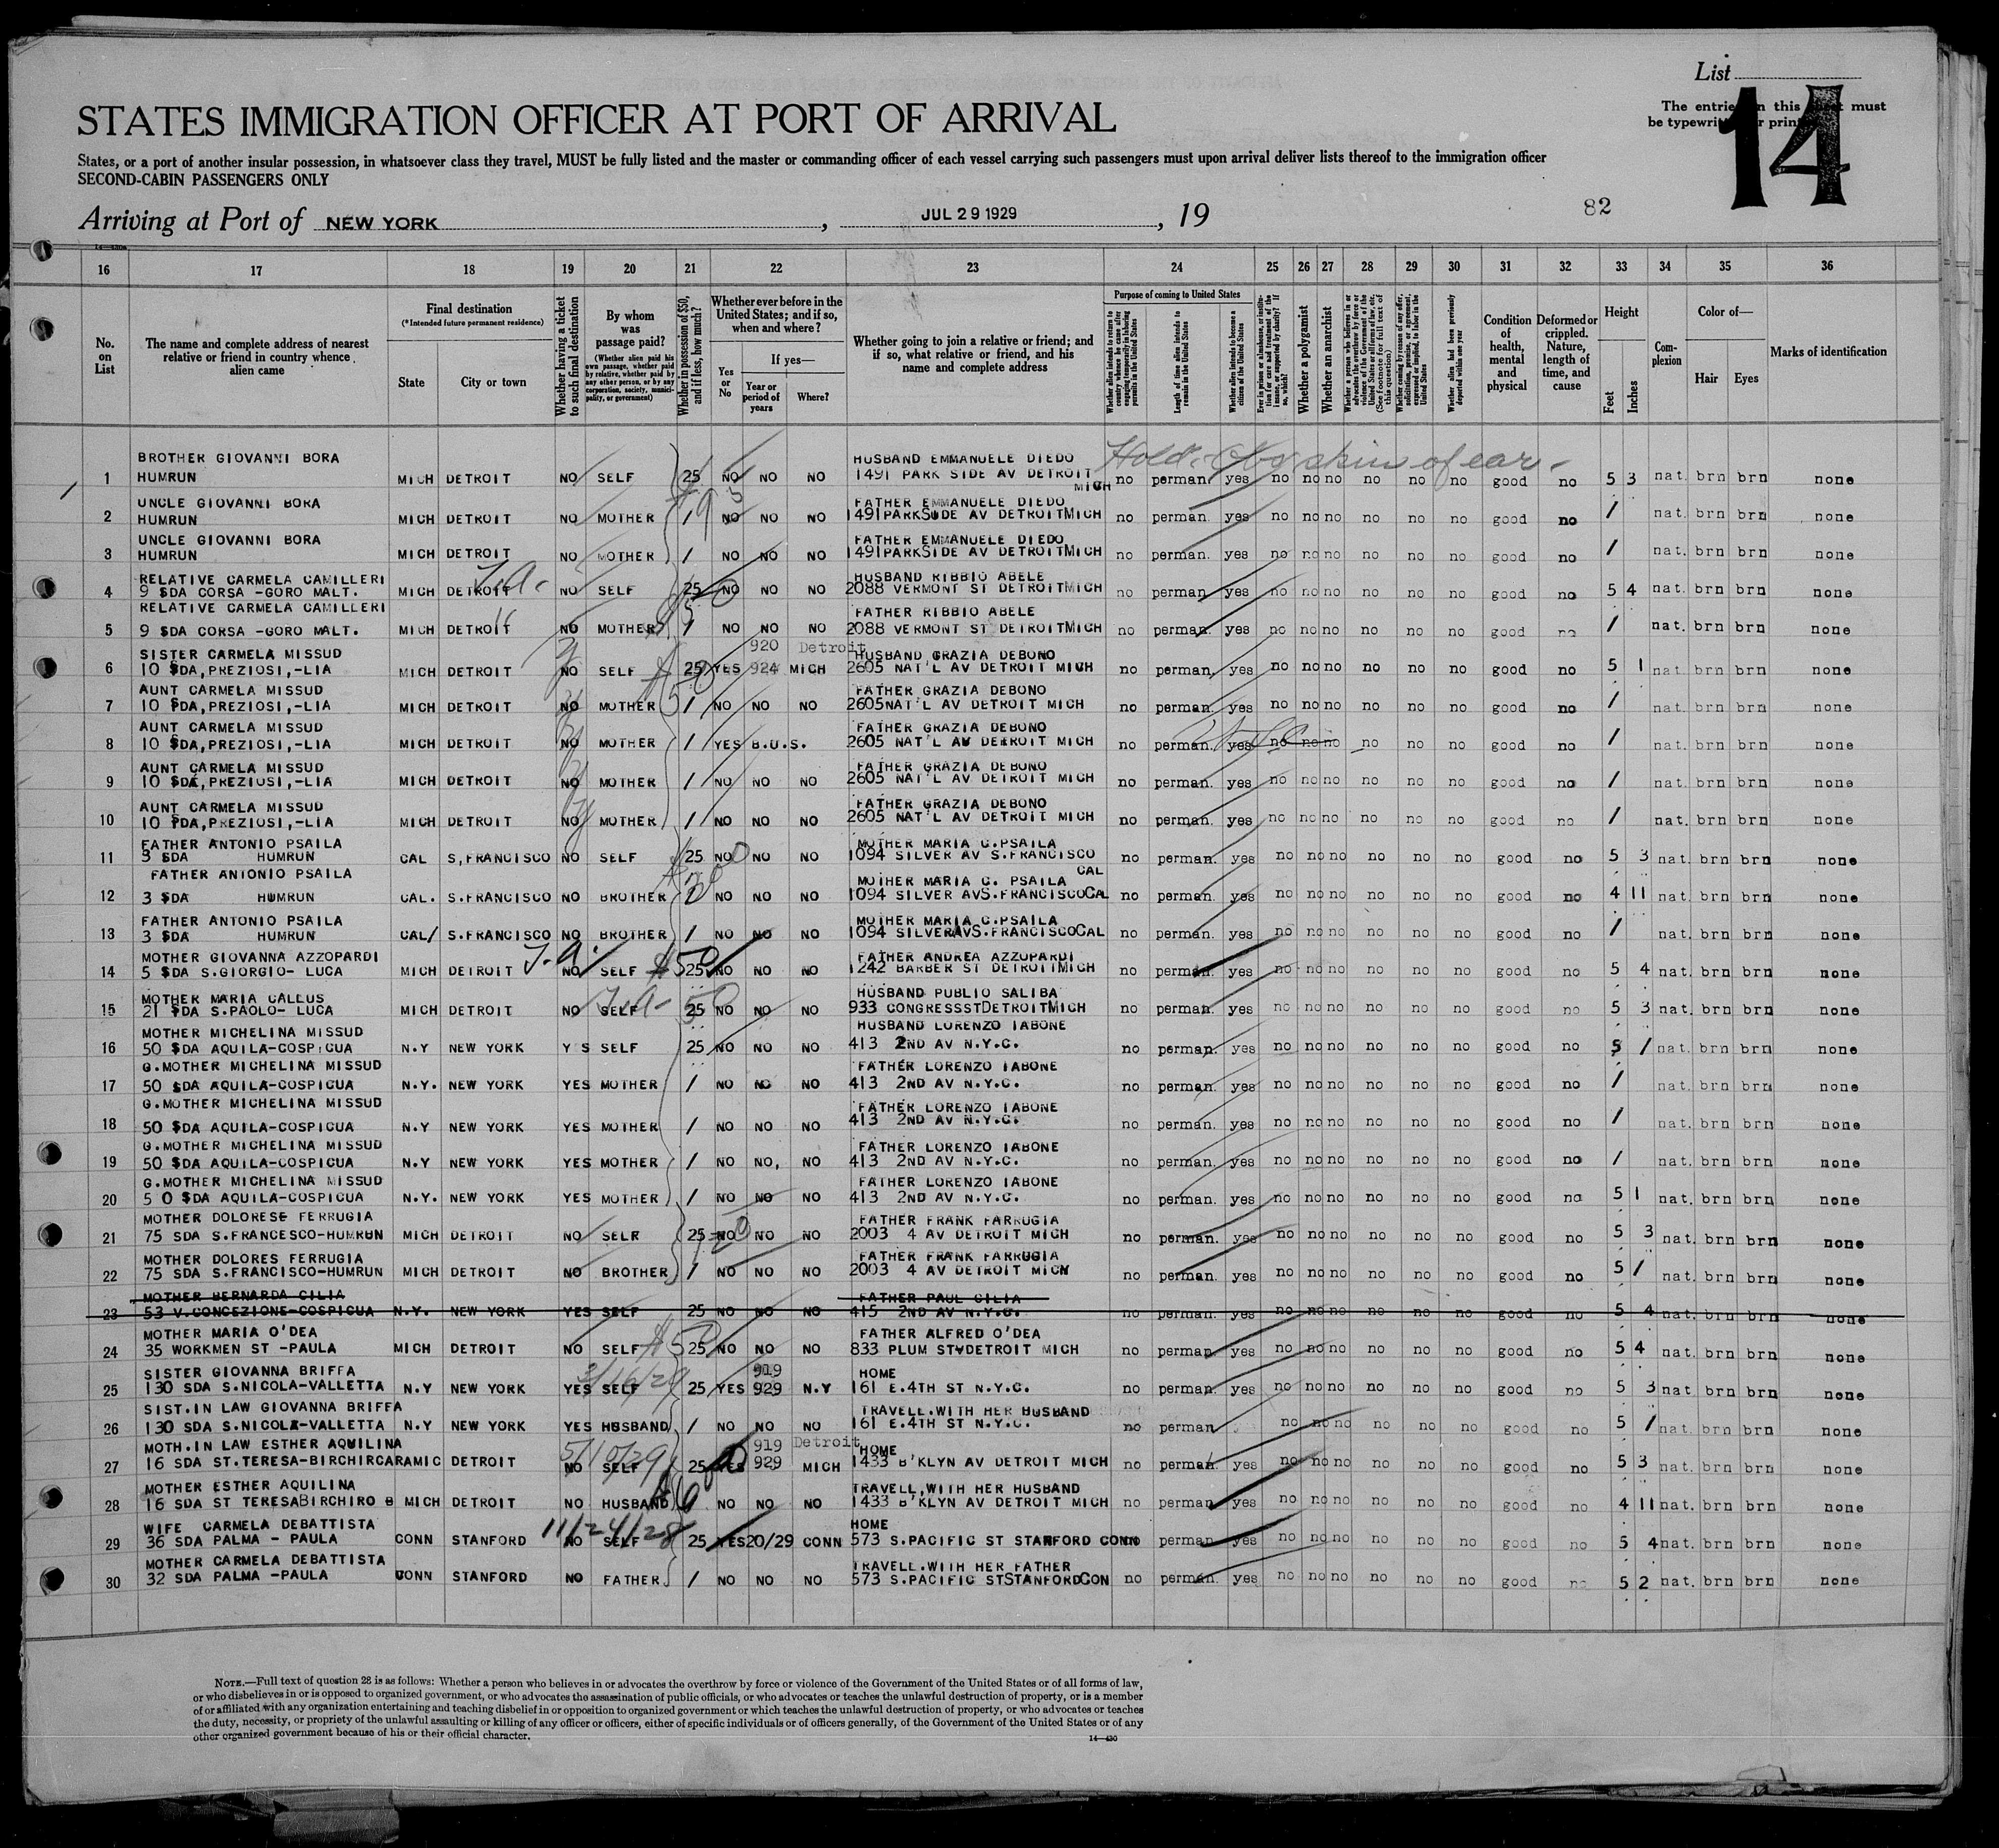 List
14
The entries on this sheet must
be typewritten or printed.
STATES IMMIGRATION OFFICER AT PORT OF ARRIVAL
States, or a port of another insular possession, in whatsoever class they travel, MUST be fully listed and the master or commanding officer of each vessel carrying such passengers must upon arrival deliver lists thereof to the immigration officer
SECOND-CABIN PASSENGERS ONLY
Arriving at Port of NEW YORK, JUL 29 1929, 19
82
16 17 18 19 20 21 22 23 24 25 26 27 28 29 30 31 32 33 34 35 36
No. on List
The name and complete address of nearest relative or friend in country whence alien came
Final destination
(*Intended future permanent residence)
State
City or town
Whether having a ticket to such final destination
By whom was passage paid?
(Whether alien paid his own passage, whether paid by relative, whether paid by any other person, or by any corporation, society, municipality, or government)
Whether in possession of $50, and if less, how much?
Whether ever before in the United States; and if so, when and where?
If yes—
Yes or No
Year or period of years
Where?
Whether going to join a relative or friend; and if so, what relative or friend, and his name and complete address
Purpose of coming to United States
Whether alien intends to return to country whence he came after engaging temporarily in laboring pursuits in the United States
Length of time alien intends to remain in the United States
Whether alien intends to become a citizen of the United States
Whether a polygamist
Whether an anarchist
Whether alien had been previously deported within one year
Condition of health, mental and physical
Deformed or crippled. Nature, length of time, and cause
Height
Feet
Inches
Complexion
Color of—
Hair
Eyes
Marks of identification
BROTHER GIOVANNI BORA HUSBAND EMMANUELE DIEDO Hold. skin of ear -
1 HUMRUN MICH DETROIT NO SELF 25 NO NO NO 1491 PARK SIDE AV DETROIT MICH no perman. yes no no no no no no good no 5 3 nat. brn brn none
UNCLE GIOVANNI BORA FATHER EMMANUELE DIEDO
2 HUMRUN MICH DETROIT NO MOTHER / NO NO NO 1491PARKSIDE AV DETROITMICH no perman. yes no no no no no no good no / nat. brn brn none
UNCLE GIOVANNI BORA FATHER EMMANUELE DIEDO
3 HUMRUN MICH DETROIT NO MOTHER / NO NO NO 1491PARKSIDE AV DETROITMICH no perman. yes no no no no no no good no / nat. brn brn none
RELATIVE CARMELA CAMILLERI HUSBAND RIBBIO ABELE
4 9 $DA CORSA -GORO MALT. MICH DETROIT NO SELF 25 NO NO NO 2088 VERMONT ST DETROITMICH no perman yes no no no no no no good no 5 4 nat. brn brn none
RELATIVE CARMELA CAMILLERI FATHER RIBBIO ABELE
5 9 $DA CORSA -GORO MALT. MICH DETROIT NO MOTHER / NO NO NO 2088 VERMONT ST DETROITMICH no perman. yes no no no no no no good no / nat. brn brn none
SISTER CARMELA MISSUD 920 Detroit HUSBAND GRAZIA DEBONO
6 10 $DA,PREZIOSI,-LIA MICH DETROIT NO SELF 25 YES 924 MICH 2605 NAT'L AV DETROIT MICH no perman, yes no no no no no no good no 5 1 nat brn brn none
AUNT CARMELA MISSUD FATHER GRAZIA DEBONO
7 10 $DA,PREZIOSI,-LIA MICH DETROIT NO MOTHER / NO NO NO 2605NAT'L AV DETROIT MICH no perman. yes no no no no no no good no / nat. brn brn none
AUNT CARMELA MISSUD FATHER GRAZIA DEBONO
8 10 $DA,PREZIOSI,-LIA MICH DETROIT NO MOTHER / YES B.U.S. 2605 NAT'L AV DETROIT MICH no perman. yes no no no no no no good no / nat. brn brn none
AUNT CARMELA MISSUD FATHER GRAZIA DEBONO
9 10 $DA,PREZIOSI,-LIA MICH DETROIT NO MOTHER / NO NO NO 2605 NAT'L AV DETROIT MICH no perman. yes no no no no no no good no / nat. brn brn none
AUNT CARMELA MISSUD FATHER GRAZIA DEBONO
10 10 $DA,PREZIOSI,-LIA MICH DETROIT NO MOTHER / NO NO NO 2605 NAT'L AV DETROIT MICH no perman. yes no no no no no no good no / nat. brn brn none
FATHER ANTONIO PSAILA MOTHER MARIA C.PSAILA
11 3 $DA HUMRUN CAL S,FRANCISCO NO SELF 25 NO NO NO 1094 SILVER AV S.FRANCISCO CAL no perman. yes no no no no no no good no 5 3 nat. brn brn none
FATHER ANTONIO PSAILA MOTHER MARIA C. PSAILA
12 3 $DA HUMRUN CAL. S.FRANCISCO NO BROTHER / NO NO NO 1094 SILVER AVS.FRANCISCOCAL no perman. yes no no no no no no good no 4 11 nat. brn brn none
FATHER ANTONIO PSAILA MOTHER MARIA C.PSAILA
13 3 $DA HUMRUN CAL/ S.FRANCISCO NO BROTHER / NO NO NO 1094 SILVERAVS.FRANCISCOCAL no perman. yes no no no no no no good no / nat. brn brn none
MOTHER GIOVANNA AZZOPARDI FATHER ANDREA AZZOPARDI
14 5 $DA S.GIORGIO- LUCA MICH DETROIT NO SELF $50 25 NO NO NO 1242 BARBER ST DETROITMICH no perman. yes no no no no no no good no 5 4 nat. brn brn none
MOTHER MARIA CALLUS HUSBAND PUBLIO SALIBA
15 21 $DA S.PAOLO- LUCA MICH DETROIT NO SELF 50 25 NO NO NO 933 CONGRESSSTDETROITMICH no perman. yes no no no no no no good no 5 3 nat. brn brn none
MOTHER MICHELINA MISSUD HUSBAND LORENZO IABONE
16 50 $DA AQUILA-COSPICUA N.Y NEW YORK Y S SELF 25 NO NO NO 413 2ND AV N.Y.C. no perman. yes no no no no no no good no 5 / nat. brn brn none
G.MOTHER MICHELINA MISSUD FATHER LORENZO IABONE
17 50 $DA AQUILA-COSPICUA N.Y. NEW YORK YES MOTHER / NO NO NO 413 2ND AV N.Y.C. no perman. yes no no no no no no good no / nat. brn brn none
G.MOTHER MICHELINA MISSUD FATHER LORENZO IABONE
18 50 $DA AQUILA-COSPICUA N.Y NEW YORK YES MOTHER / NO NO NO 413 2ND AV N.Y.C. no perman. yes no no no no no no good no / nat. brn brn none
G.MOTHER MICHELINA MISSUD FATHER LORENZO IABONE
19 50 $DA AQUILA-COSPICUA N.Y NEW YORK YES MOTHER / NO NO, NO 413 2ND AV N.Y.C. no perman. yes no no no no no no good no / nat. brn brn none
G.MOTHER MICHELINA MISSUD FATHER LORENZO IABONE
20 5 0 $DA AQUILA-COSPICUA N.Y. NEW YORK YES MOTHER / NO NO NO 413 2ND AV N.Y.C. no perman. yes no no no no no no good no 5 1 nat. brn brn none
MOTHER DOLORESE FERRUGIA FATHER FRANK FARRUGIA
21 75 SDA S.FRANCESCO-HUMRUN MICH DETROIT NO SELF 25 NO NO NO 2003 4 AV DETROIT MICH no perman. yes no no no no no no good no 5 3 nat. brn brn none
MOTHER DOLORES FERRUGIA FATHER FRANK FARRUGIA
22 75 SDA S.FRANCISCO-HUMRUN MICH DETROIT NO BROTHER / NO NO NO 2003 4 AV DETROIT MICH no perman. yes no no no no no no good no 5 / nat. brn brn none
MOTHER BERNARDA CILIA FATHER PAUL CILIA
23 53 V.CONCEZIONE-COSPICUA N.Y. NEW YORK YES SELF 25 NO NO NO 415 2ND AV N.Y.C. no perman. yes no no no no no no good no 5 4 nat. brn brn none
MOTHER MARIA O'DEA FATHER ALFRED O'DEA
24 35 WORKMEN ST -PAULA MICH DETROIT NO SELF $50 25 NO NO NO 833 PLUM ST DETROIT MICH no perman. yes no no no no no no good no 5 4 nat. brn brn none
SISTER GIOVANNA BRIFFA 3/16/29 919 HOME
25 130 SDA S.NICOLA-VALLETTA N.Y NEW YORK YES SELF 25 YES 929 N.Y 161 E.4TH ST N.Y.C. no perman. yes no no no no no no good no 5 3 nat. brn brn none
SIST.IN LAW GIOVANNA BRIFFA TRAVELL.WITH HER HUSBAND
26 130 SDA S.NICOLA-VALLETTA N.Y NEW YORK YES HUSBAND / NO NO NO 161 E.4TH ST N.Y.C. no perman no no no no no no good no 5 / nat. brn brn none
MOTH.IN LAW ESTHER AQUILINA 5/10/29 919 Detroit HOME
27 16 SDA ST.TERESA-BIRCHIRCARAMIC DETROIT NO SELF 25 YES 929 MICH 1433 B'KLYN AV DETROIT MICH no perman. yes no no no no no no good no 5 3 nat. brn brn none
MOTHER ESTHER AQUILINA TRAVELL,WITH HER HUSBAND
28 16 SDA ST TERESABIRCHIRO B MICH DETROIT NO HUSBAND NO NO NO 1433 B'KLYN AV DETROIT MICH no perman yes no no no no no no good no 4 11 nat. brn brn none
WIFE CARMELA DEBATTISTA 11/24/28 HOME
29 36 SDA PALMA - PAULA CONN STANFORD NO SELF 25 YES 20/29 CONN 573 S.PACIFIC ST STANFORD CONN no perman. yes no no no no no no good no 5 4 nat. brn brn none
MOTHER CARMELA DEBATTISTA TRAVELL.WITH HER FATHER
30 32 SDA PALMA -PAULA CONN STANFORD NO FATHER / NO NO NO 573 S.PACIFIC STSTANFORDCON no perman. yes no no no no no no good no 5 2 nat. brn brn none
NOTE.—Full text of question 28 is as follows: Whether a person who believes in or advocates the overthrow by force or violence of the Government of the United States or of all forms of law,
or who disbelieves in or is opposed to organized government, or who advocates the assassination of public officials, or who advocates or teaches the unlawful destruction of property, or is a member
of or affiliated with any organization entertaining and teaching disbelief in or opposition to organized government or which teaches the unlawful destruction of property, or who advocates or teaches
the duty, necessity, or propriety of the unlawful assaulting or killing of any officer or officers, either of specific individuals or of officers generally, of the Government of the United States or of any
other organized government because of his or their official character.
14—430